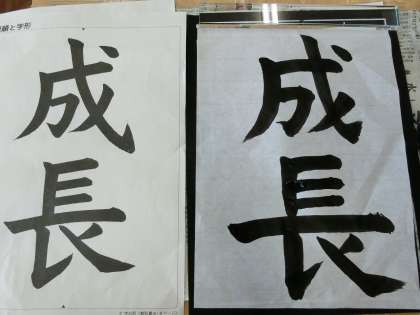 と字形
成
長
成
長